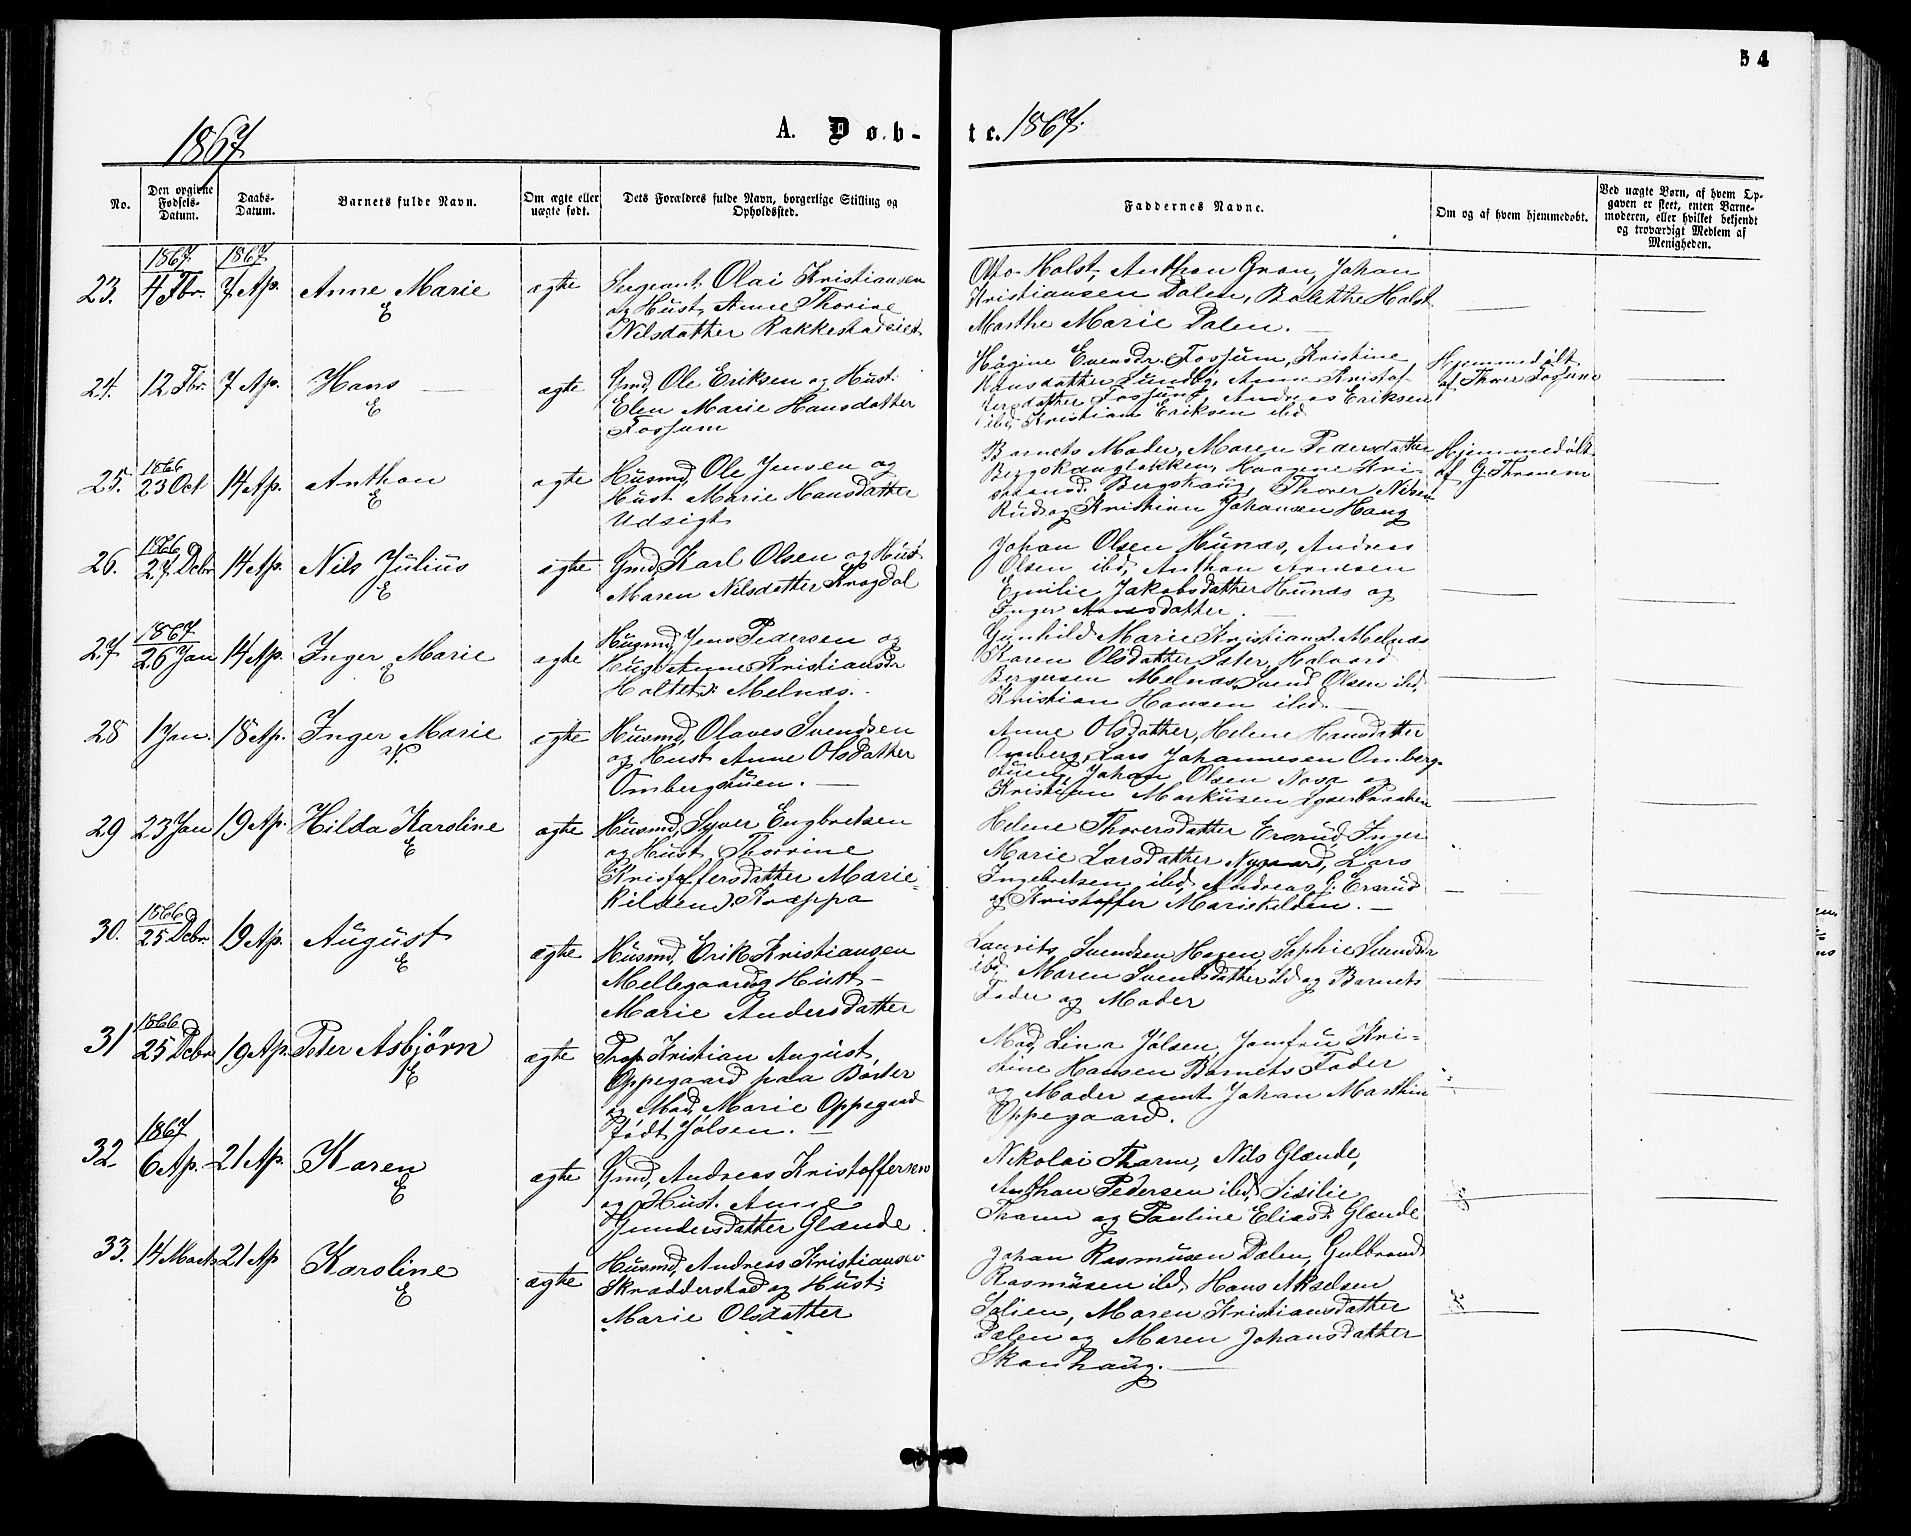 54
1867
A. Døb-
te. 1867.
No.
Den opgivne Fødsels-Datum.
Daabs-Datum.
Barnets fulde Navn.
Om ægte eller uægte født.
Dets Forældres fulde Navn, borgerlige Stilling og Opholdssted.
Faddernes Navne.
Om og af hvem hjemmedøbt.
Ved uægte Børn, af hvem Opgaven er skeet, enten Barnemoderen, eller hvilket bekjendt og troværdigt Medlem af Menigheden.
1867 1867
23. 4 Fbr. 7 Ap. Anne Marie ægte Sergeant Olai Kristiansen
E
og Hust. Anne Thorine
Nilsdatter Rakkestadeie
Otto Holst, Anthon Gran, Johan
Kristiansen Dalen, Bolette Holst
Marthe Marie Dalen.
24. 12 Fbr. 7 Ap. Hans ægte Gmd. Ole Eriksen og Hust.
E
Elen Marie Hansdatter
Fossum
Hagine Evensdr. Fossum, Kristine
Hansdatter Lundby, Anne Kristof-
fersdatter Fossum, Andreas Eriksen
ibd, Kristian Eriksen ibid
Hjemmedøbt
af Thorer Fossum
25. 1866 23 Oct 14 Ap. Anthon ægte Husmd. Ole Jensen og
E
Hust. Marie Hansdatter
Udsigt
Barnets Moder, Maren Pedersdatter
Bergskaugløkken, Haagene Kri-
stiansd. Bergskaug, Thorer Nilsen
Rud og Kristian Johansen Haug
Hjemmedøbt
af G. Thranem
26. 1866 27 Dcbr. 14 Ap. Nils Julius ægte Gmd. Karl Olsen og Hust
E
Maren Nilsdatter Krogdal
Johan Olsen Hunæs, Andreas
Olsen ibd, Anthon Arnesen
Emilie Jakobsdatter Hunæs og
Inger datter.
27 1867 26 Jan 14 Ap. Inger Marie ægte Husmd. Jens Pedersen og
E
Hust. Anne Kristiansdr
Holtet u. Melnæs.
Gunhild Marie Kristiansd. Melnæs
Karen Olsdatter Sæter, Halvard
Bergersen Melnæs, Svend Olsen ibd,
Kristian Hansen ibd.
28 1 Jan. 18 Ap. Inger Marie ægte Husmd. Olaves Svendsen
og Hust. Anne Olsdatter
Ombergstuen.
Anne Olsdatter, Helene Hansdatter
Omberg, Lars Johannesen Omberg-
stuen, Johan Olsen Nasa og
Kristian Markusen
29 23 Jan 19 Ap. Hilda Karoline ægte Husmd. Syver Engbretsen
E
og Hust. Thorine
Kristoffersdatter Marie-
kilden u. Kræppa
Helene Thoversdatter Ersrud, Inger
Marie Larsdatter Nygaard, Lars
Ingebretsen ibd, Andreas G. Ersrud
og Kristoffer Mariekilden.
30. 1866 25 Dcbr. 19 Ap. August ægte Husmd. Erik Kristiansen
E
Mellegaard og Hust.
Marie Andersdatter
Laurits Svendsen Hagen, Sophie Svendsdr
ibd, Maren Svendsdatter ibd og Barnets
Fader og Moder
31 1866 25 Dcbr. 19 Ap. Peter Asbjørn ægte Prop. Kristian August
E
Oppegaard paa Børter
og Mad. Marie Oppegaard
født Jølsen.
Mad. Lina Jølsen, Jomfru Kri-
stine Hansen Barnets Fader
og Moder samt Johan Marthin
Oppegaard.
32 1867 6 Ap. 21 Ap. Karen ægte Gmd. Andreas Kristoffersen
E
og Hust. Anne
Gundersdatter Glænde
Nikolai Tharm, Nils Glænde,
Anthon Pedersen ibd, Sisilie
Tharm og Pauline Eliasd. Glænde
33. 14 Marts 21 Ap Karoline ægte Husmd. Andreas Kristiansen
E
Skrædderstad og Hust.
Marie Olsdatter
Johan Rasmusen Dalen, Gulbrand
Rasmusen ibd, Hans Akselsen
Solien, Maren Kristiansdatter
Dalen og Maren Johansdatter
Skanhaug.